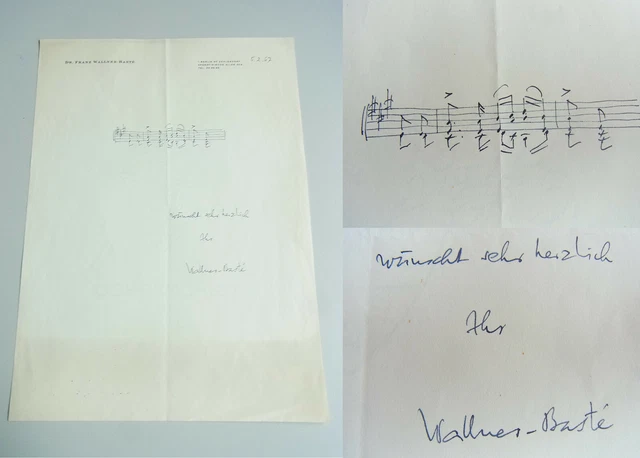 DR. FRANZ WALLNER-BASTÉ
wünscht sehr herzlich
Ihr
Wallner-Basté
wünscht sehr herzlich
Ihr
Wallner-Basté